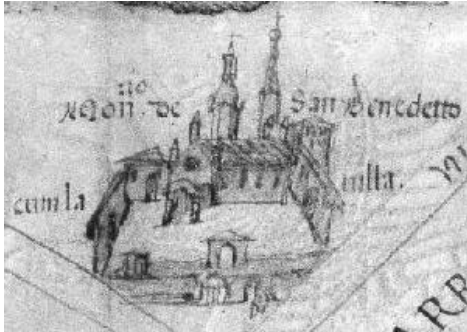 rio
Mon. de San Benedetto
cum la villa.
RR